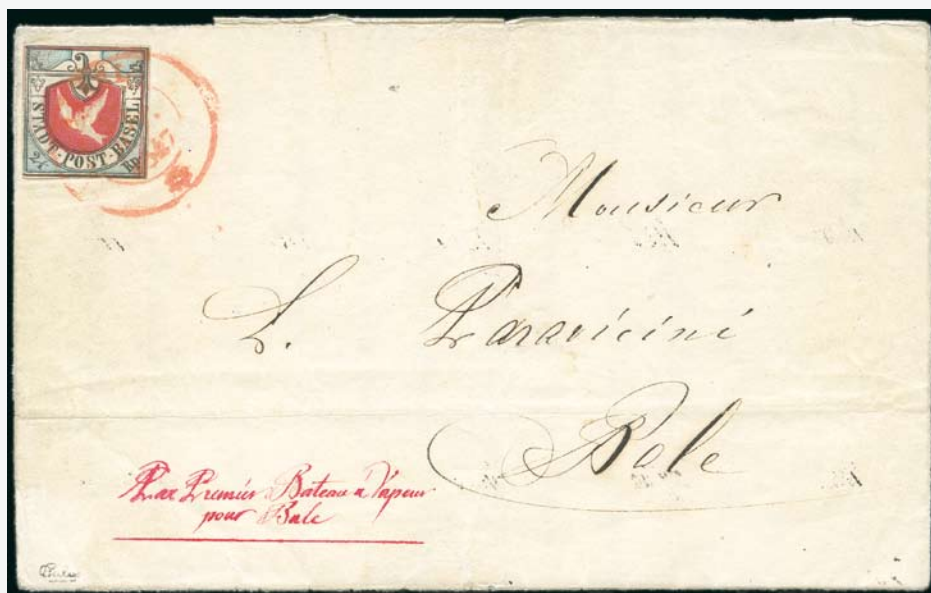 STADT·POST·BASEL
2½ Rp.
47
Monsieur
L. Paravicini
Bale
Par Premier Bateau à Vapeur
pour Bale